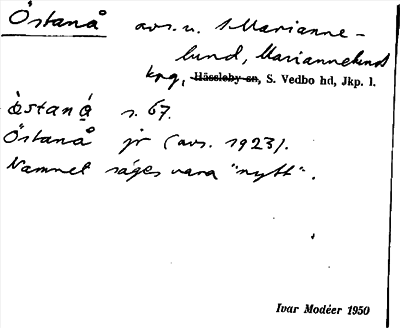 Östanå avs. u. Marianne-
lund, Mariannelunds
kpg, Hässleby sn, S. Vedbo hd, Jkp. l.
östanå s. 67.
Östanå jr (avs. 1923).
Namnet säges vara "nytt".
Ivar Modéer 1950